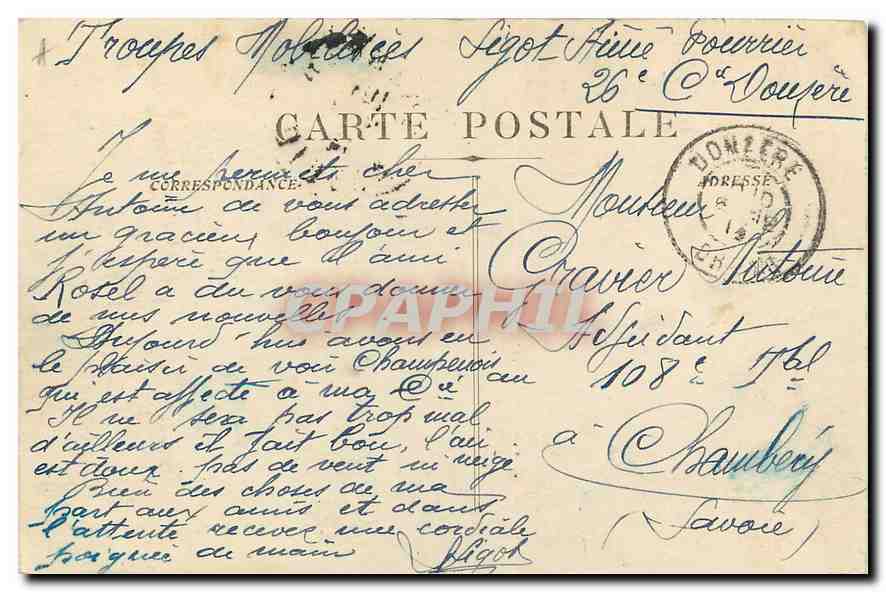 Troupes Mobilisées Sigot Aimé Fourrier
26e Cie Donzère
CARTE POSTALE
CORRESPONDANCE
ADRESSE
DONZERE
Je me permets cher
Antoine de vous adresser
un gracieux bonjour et
j'espère que l'ami
Rosel a du vous donner
de mes nouvelles
Aujourd'hui avons eu
le plaisir de voir Champenois
qui est affecté à ma Cie
Il ne sera pas trop mal
d'ailleurs il fait bon, l'air
est doux. pas de vent ni neige
Bien des choses de ma
part aux amis et dans
l'attente recevez une cordiale
poignée de main Sigot
Monsieur
Chavier Antoine
Adjudant
au 108e Tal
à Chambéry
(Savoie)
CPAPHIL